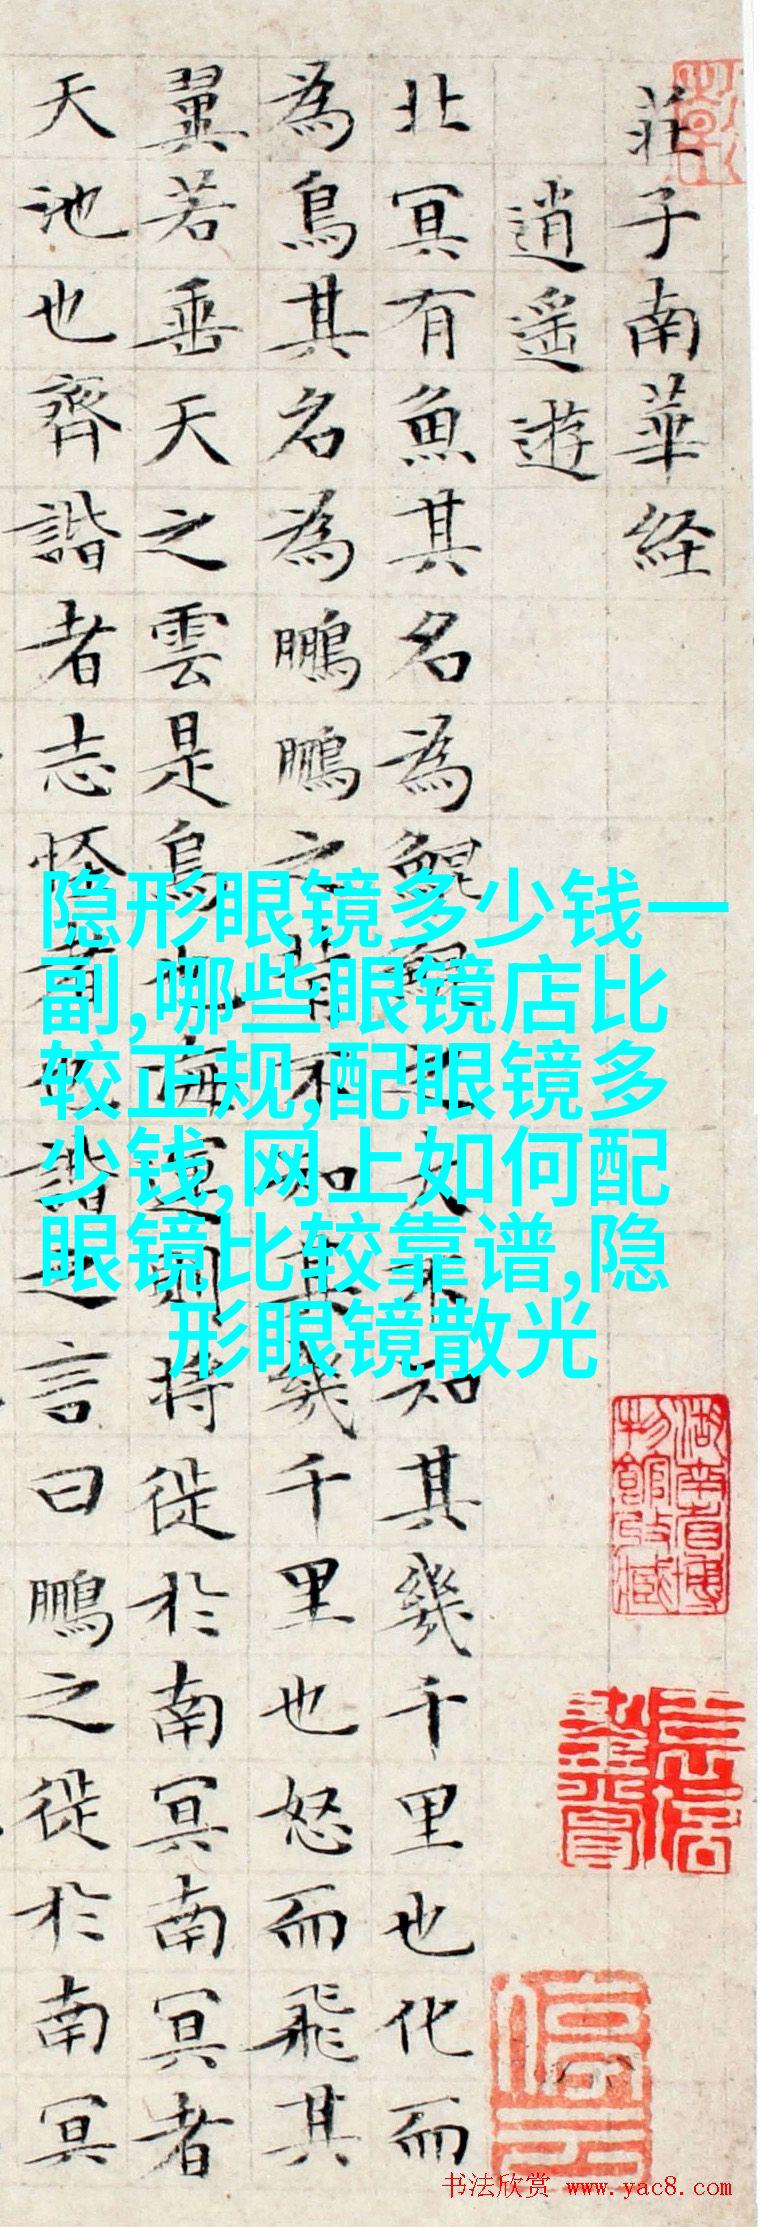 莊子南華経
逍遥遊
北冥有魚其名為鯤鯤之大不知其幾千里也化而
為鳥其名為鵬鵬之背不知其幾千里也怒而飛其
翼若垂天之雲是鳥也海運則将徙於南冥南冥者
天池也齊諧者志怪者也諧之言曰鵬之徙於南冥
隐形眼镜多少钱一
副,哪些眼镜店比
较正规,配眼镜多
少钱,网上如何配
眼镜比较靠谱,隐
形眼镜散光
湖南省博
物館收藏
停云
书法欣赏 www.yac8.com